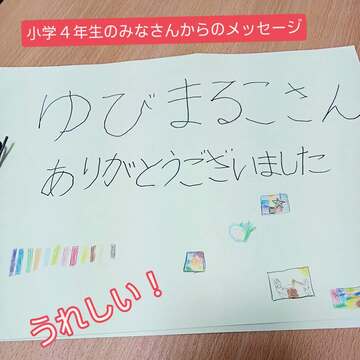 小学４年生のみなさんからのメッセージ
ゆびまるこさん
ありがとうございました
うれしい！